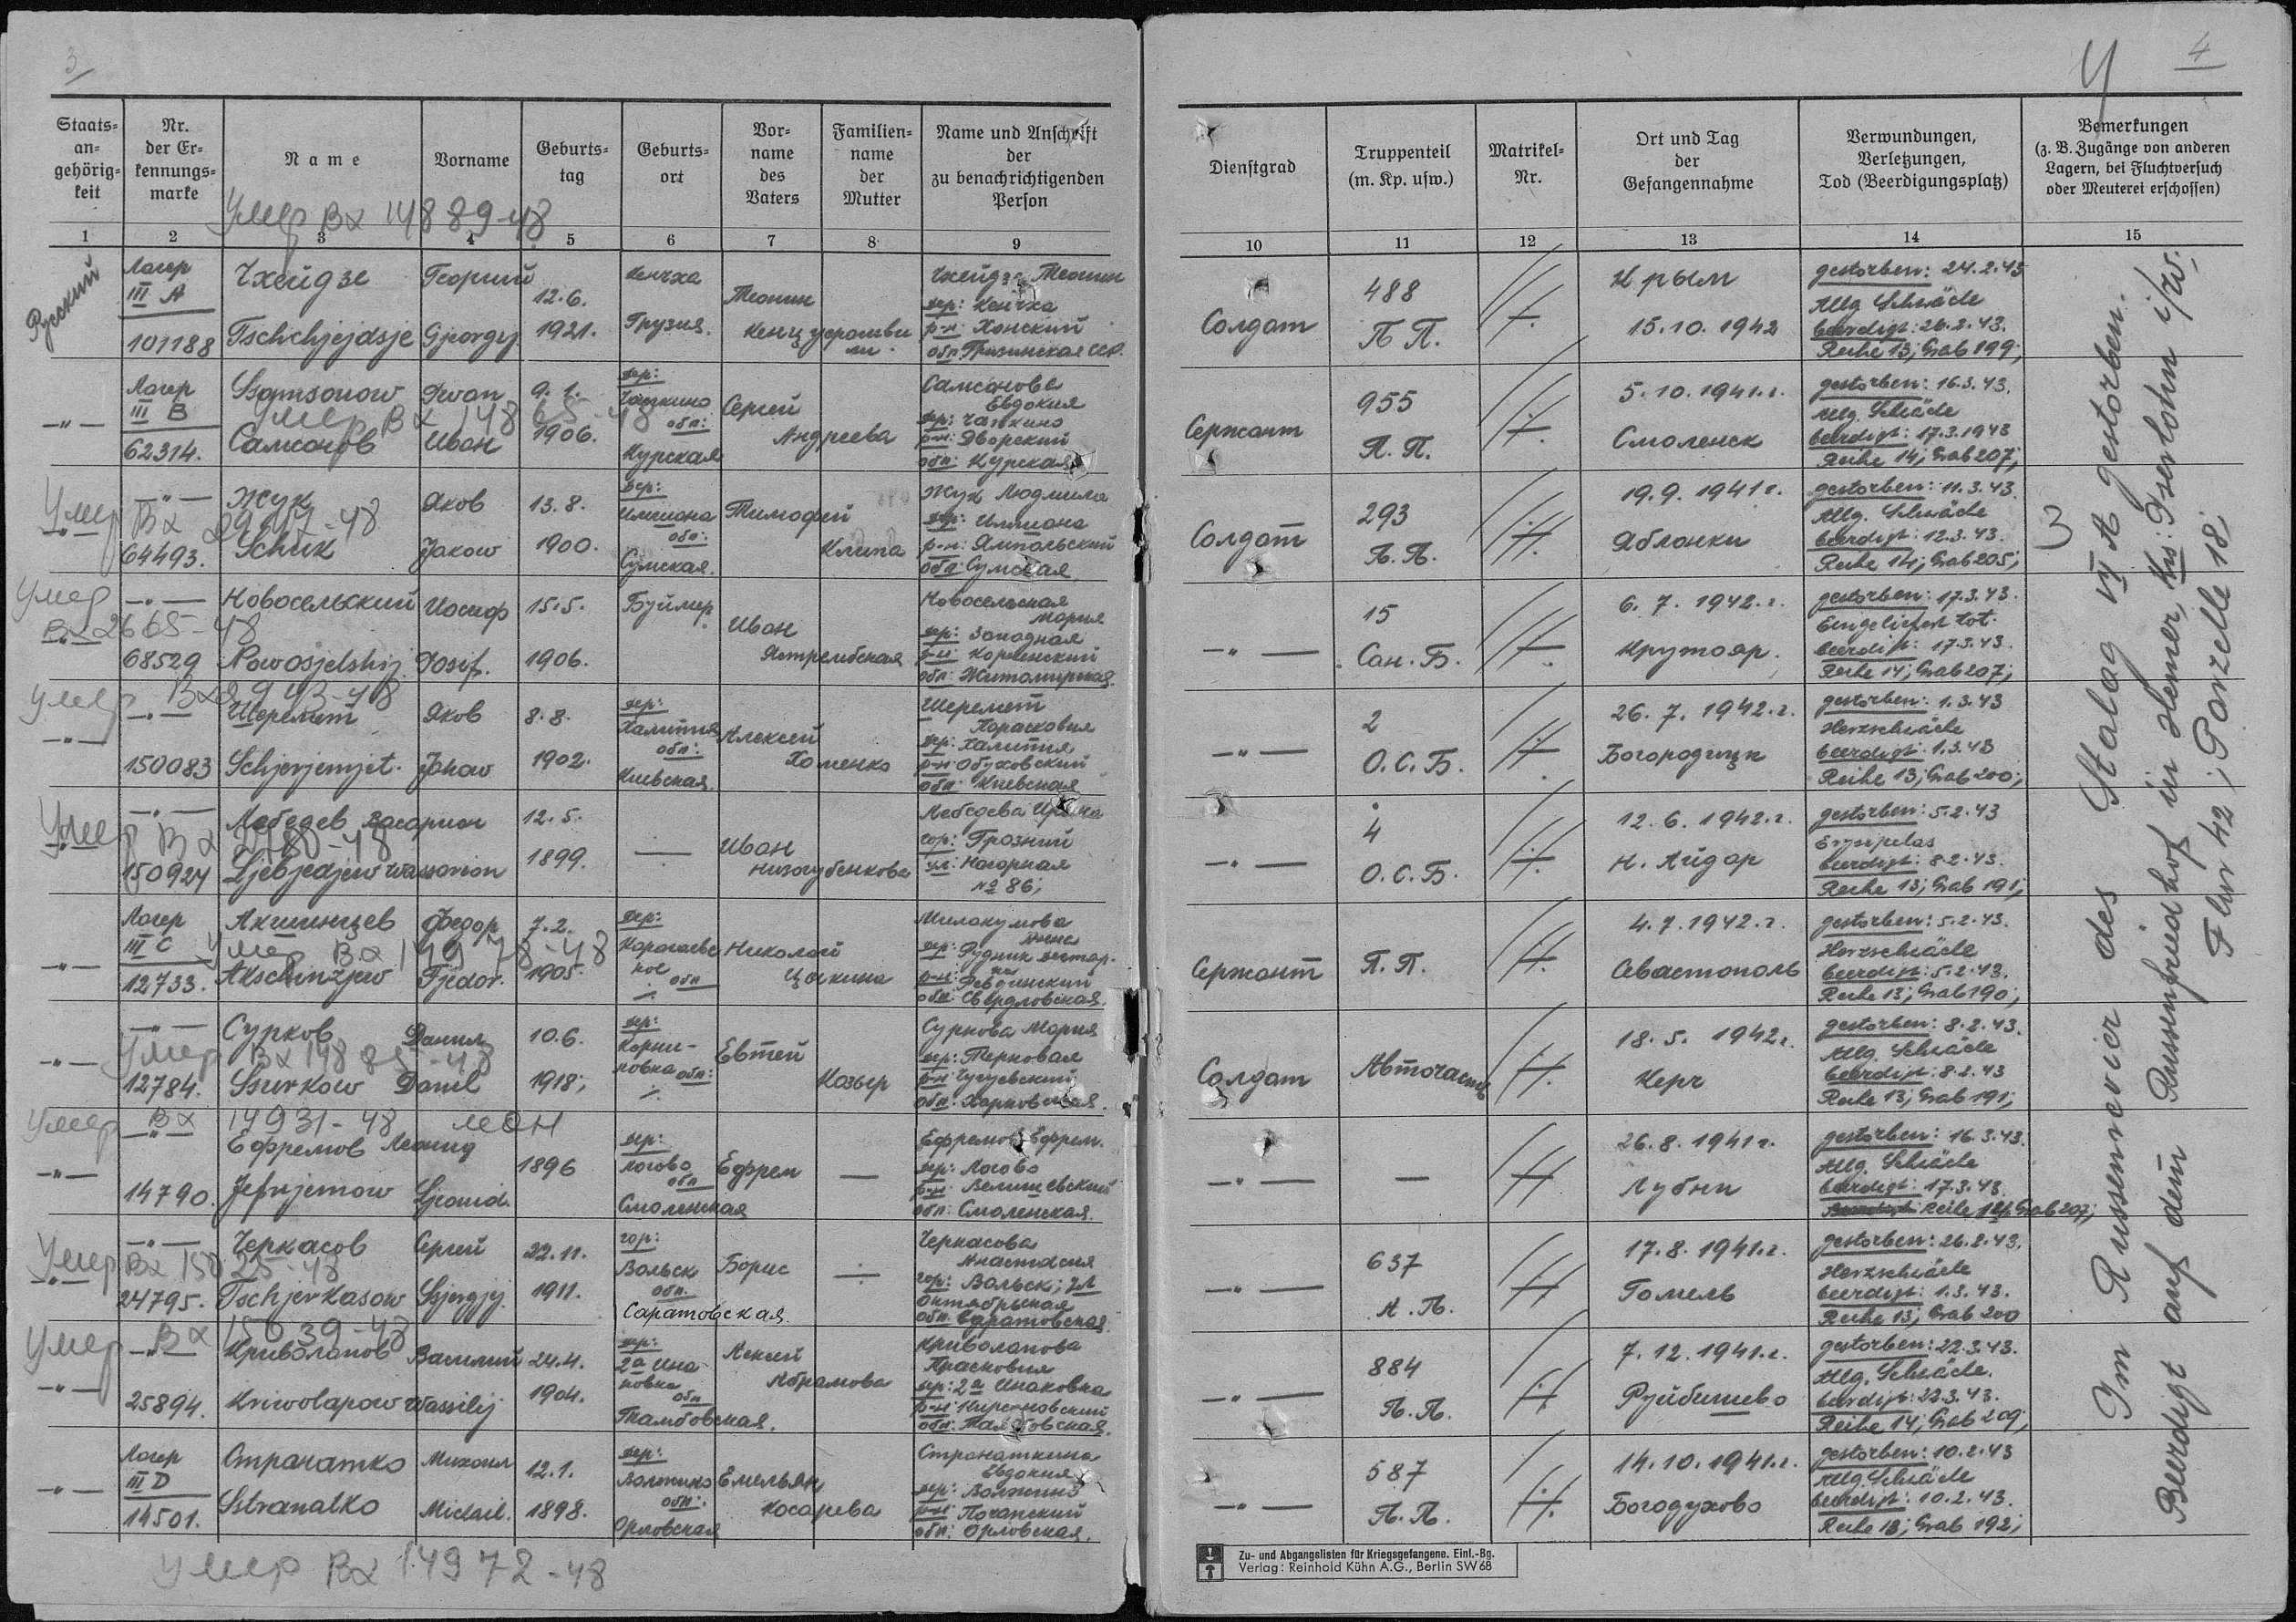 3
Staats=
an=
gehörig=
keit
Nr.
der Er=
kennungs=
marke
Name
Vorname
Geburts=
tag
Geburts=
ort
Vor=
name
des
Vaters
Familien=
name
der
Mutter
Name und Anschrift
der
zu benachrichtigenden
Person
Умер Вх 14889-48
1 2 3 4 5 6 7 8 9
Русский
Лагер
III A
101188
Чхейдзе
Tschchjejdsje
Георгий
Gjeorgij
12.6.
1921.
Кенчха
Грузия.
Теопин
Чхейдзе Теопин
дер: Кенчха
р-н: Хонский
обл Грузинская ССР.
Лагер
III B
62314.
Ssamsonow
Умер Вх 14865-48
Самсонов
Iwan
Иван
9.1.
1906.
дер:
Чашкино
обл:
Курская
Сергей
Андреева
Самсонова
Евдокия
дер: Чашкино
обл: Курская
Умер Вх
64493.
Жук
Schuk
Яков
Jakow
13.8.
1900.
дер:
обл:
Сумская.
Тимофей
Клипа
Жук Людмила
р-н: Ямпольский
обл: Сумская
Умер
Вх 2665-48
68529
Новосельский
Nowosjelskij
Иосиф
Josif.
15.5.
1906.
Буймер
Иван
Ястрембская
Новосельская
Мария
дер: Западная
обл: Житомирская.
Умер
150083
Шеремет
Schjerjemjet.
Яков
Jakow
8.8.
1902.
дер:
обл:
Киевская.
Алексей
Хоменко
Шеремет
Парасковия
р-н Обуховский
обл: Киевская
Умер
150924
Лебедев
Ljebjedjew
Wassarion
12.5.
1899.
Иван
Лебедева
гор: Грозный
ул: Нагорная
№ 86;
Лагер
III C
12733.
Акшинцев
Умер Вх 14978-48
Akschinzjew
Федор
Fjedor.
7.2.
1905.
дер:
обл
Николай
Милакумова
Анна
обл: Свердловская.
12784.
Сурков
Умер Вх 14885-48
Ssurkow
Данил
Danil
10.6.
1918;
дер:
Корни-
ловка обл:
Евтей
Козыр
Суркова Мария
дер: Терновая
р-н Чугуевский
обл: Харковская.
Умер Вх 14931-48
14790.
Ефремов Леонид
Jefrjemow
Ljeonid.
1896
дер:
Логово
обл
Смоленская
Ефрем
Ефремов Ефрем.
дер: Логово
обл: Смоленская.
Умер Вх 15025-48
24795.
Черкасов
Tschjerkasow
Сергей
Ssjergjej.
22.11.
1911.
гор:
Вольск
обл.
Саратовская.
Борис
Черкасова
Анастасия
гор: Вольск; ул
Октябрьская
обл: Саратовская.
Умер Вх 15039-48
25894.
Криволапов
Kriwolapow
Василий
Wassilij
24.4.
1904.
дер:
2а Ина
ковка
обл
Тамбовская.
Алексей
Абрамова
Криволапова
Прасковия
дер: 2а Инаковка
р-н: Кирсановский
обл: Тамбовская.
Лагер
III D
14501.
Стратнатко
Sstranatko
Михаил
Michail.
12.1.
1898.
дер:
обл:
Орловская
Емельян
Косарева
Евдокия
обл: Орловская.
Умер Вх 14972-48
4
Dienstgrad
Truppenteil
(m. Kp. usw.)
Matrikel=
Nr.
Ort und Tag
der
Gefangennahme
Verwundungen,
Verletzungen,
Tod (Beerdigungsplatz)
Bemerkungen
(z. B. Zugänge von anderen
Lagern, bei Fluchtversuch
oder Meuterei erschossen)
10 11 12 13 14 15
Солдат
488
П П.
Крым
15.10.1942
gestorben: 24.2.43
Allg. Schwäche
beerdigt: 26.2.43.
Reihe 13; Grab 199;
Сержант
955
П. П.
5.10.1941.г.
Смоленск
gestorben: 16.3.43.
Allg. Schwäche
beerdigt: 17.3.1943
Reihe 14; Grab 207;
Солдат
293
П. П.
19.9.1941г.
Яблонки
gestorben: 11.3.43.
Allg. Schwäche
beerdigt: 12.3.43.
Reihe 14; Grab 205;
15
Сан. Б.
6.7.1942.г.
Крутояр.
gestorben: 17.3.43.
Eingeliefert tot.
beerdigt: 17.3.43.
Reihe 14; Grab 207;
2
О.С.Б.
26.7.1942.г.
Богородицк
gestorben: 1.3.43
Herzschwäche
beerdigt: 1.3.43
Reihe 13; Grab 200;
4
О.С.Б.
12.6.1942.г.
Н. Айдар
gestorben: 5.2.43
Erysipelas
beerdigt: 8.2.43.
Reihe 13; Grab 191;
Сержант
П. П.
4.7.1942.г.
Севастополь
gestorben: 5.2.43.
Herzschwäche
beerdigt: 5.2.43.
Reihe 13; Grab 190;
Солдат
Авточасть
18.5.1942г.
Керч
gestorben: 8.2.43.
Allg. Schwäche
beerdigt: 8.2.43
Reihe 13; Grab 191;
26.8.1941г.
Лубни
gestorben: 16.3.43.
Allg. Schwäche
beerdigt: 17.3.43.
Reihe 14; Grab 207;
637
А. П.
17.8.1941.г.
Гомель
gestorben: 26.2.43.
Herzschwäche
beerdigt: 1.3.43.
Reihe 13; Grab 200
884
П. П.
7.12.1941.г.
Руйбишево
gestorben: 22.3.43.
Allg. Schwäche.
beerdigt: 23.3.43.
Reihe 14; Grab 209;
587
П. П.
14.10.1941.г.
Богодухово
gestorben: 10.2.43
Allg. Schwäche
beerdigt: 10.2.43.
Reihe 13; Grab 192;
3
Im Russenrevier des Stalag VI A gestorben.
Beerdigt auf dem Russenfriedhof in Hemer Krs: Iserlohn i/W.
Flur 42; Parzelle 18;
Zu- und Abgangslisten für Kriegsgefangene. Einl.-Bg.
Verlag: Reinhold Kühn A.G., Berlin SW 68